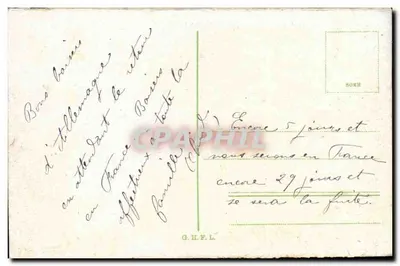 Bons baisers
d'Allemagne
en attendant le retour
en France Baisers
affectueux à toute la
famille
Encore 5 jours et
nous serons en France
encore 29 jours et
se sera la fuite.
G. H. F. L.
CPAPHIL